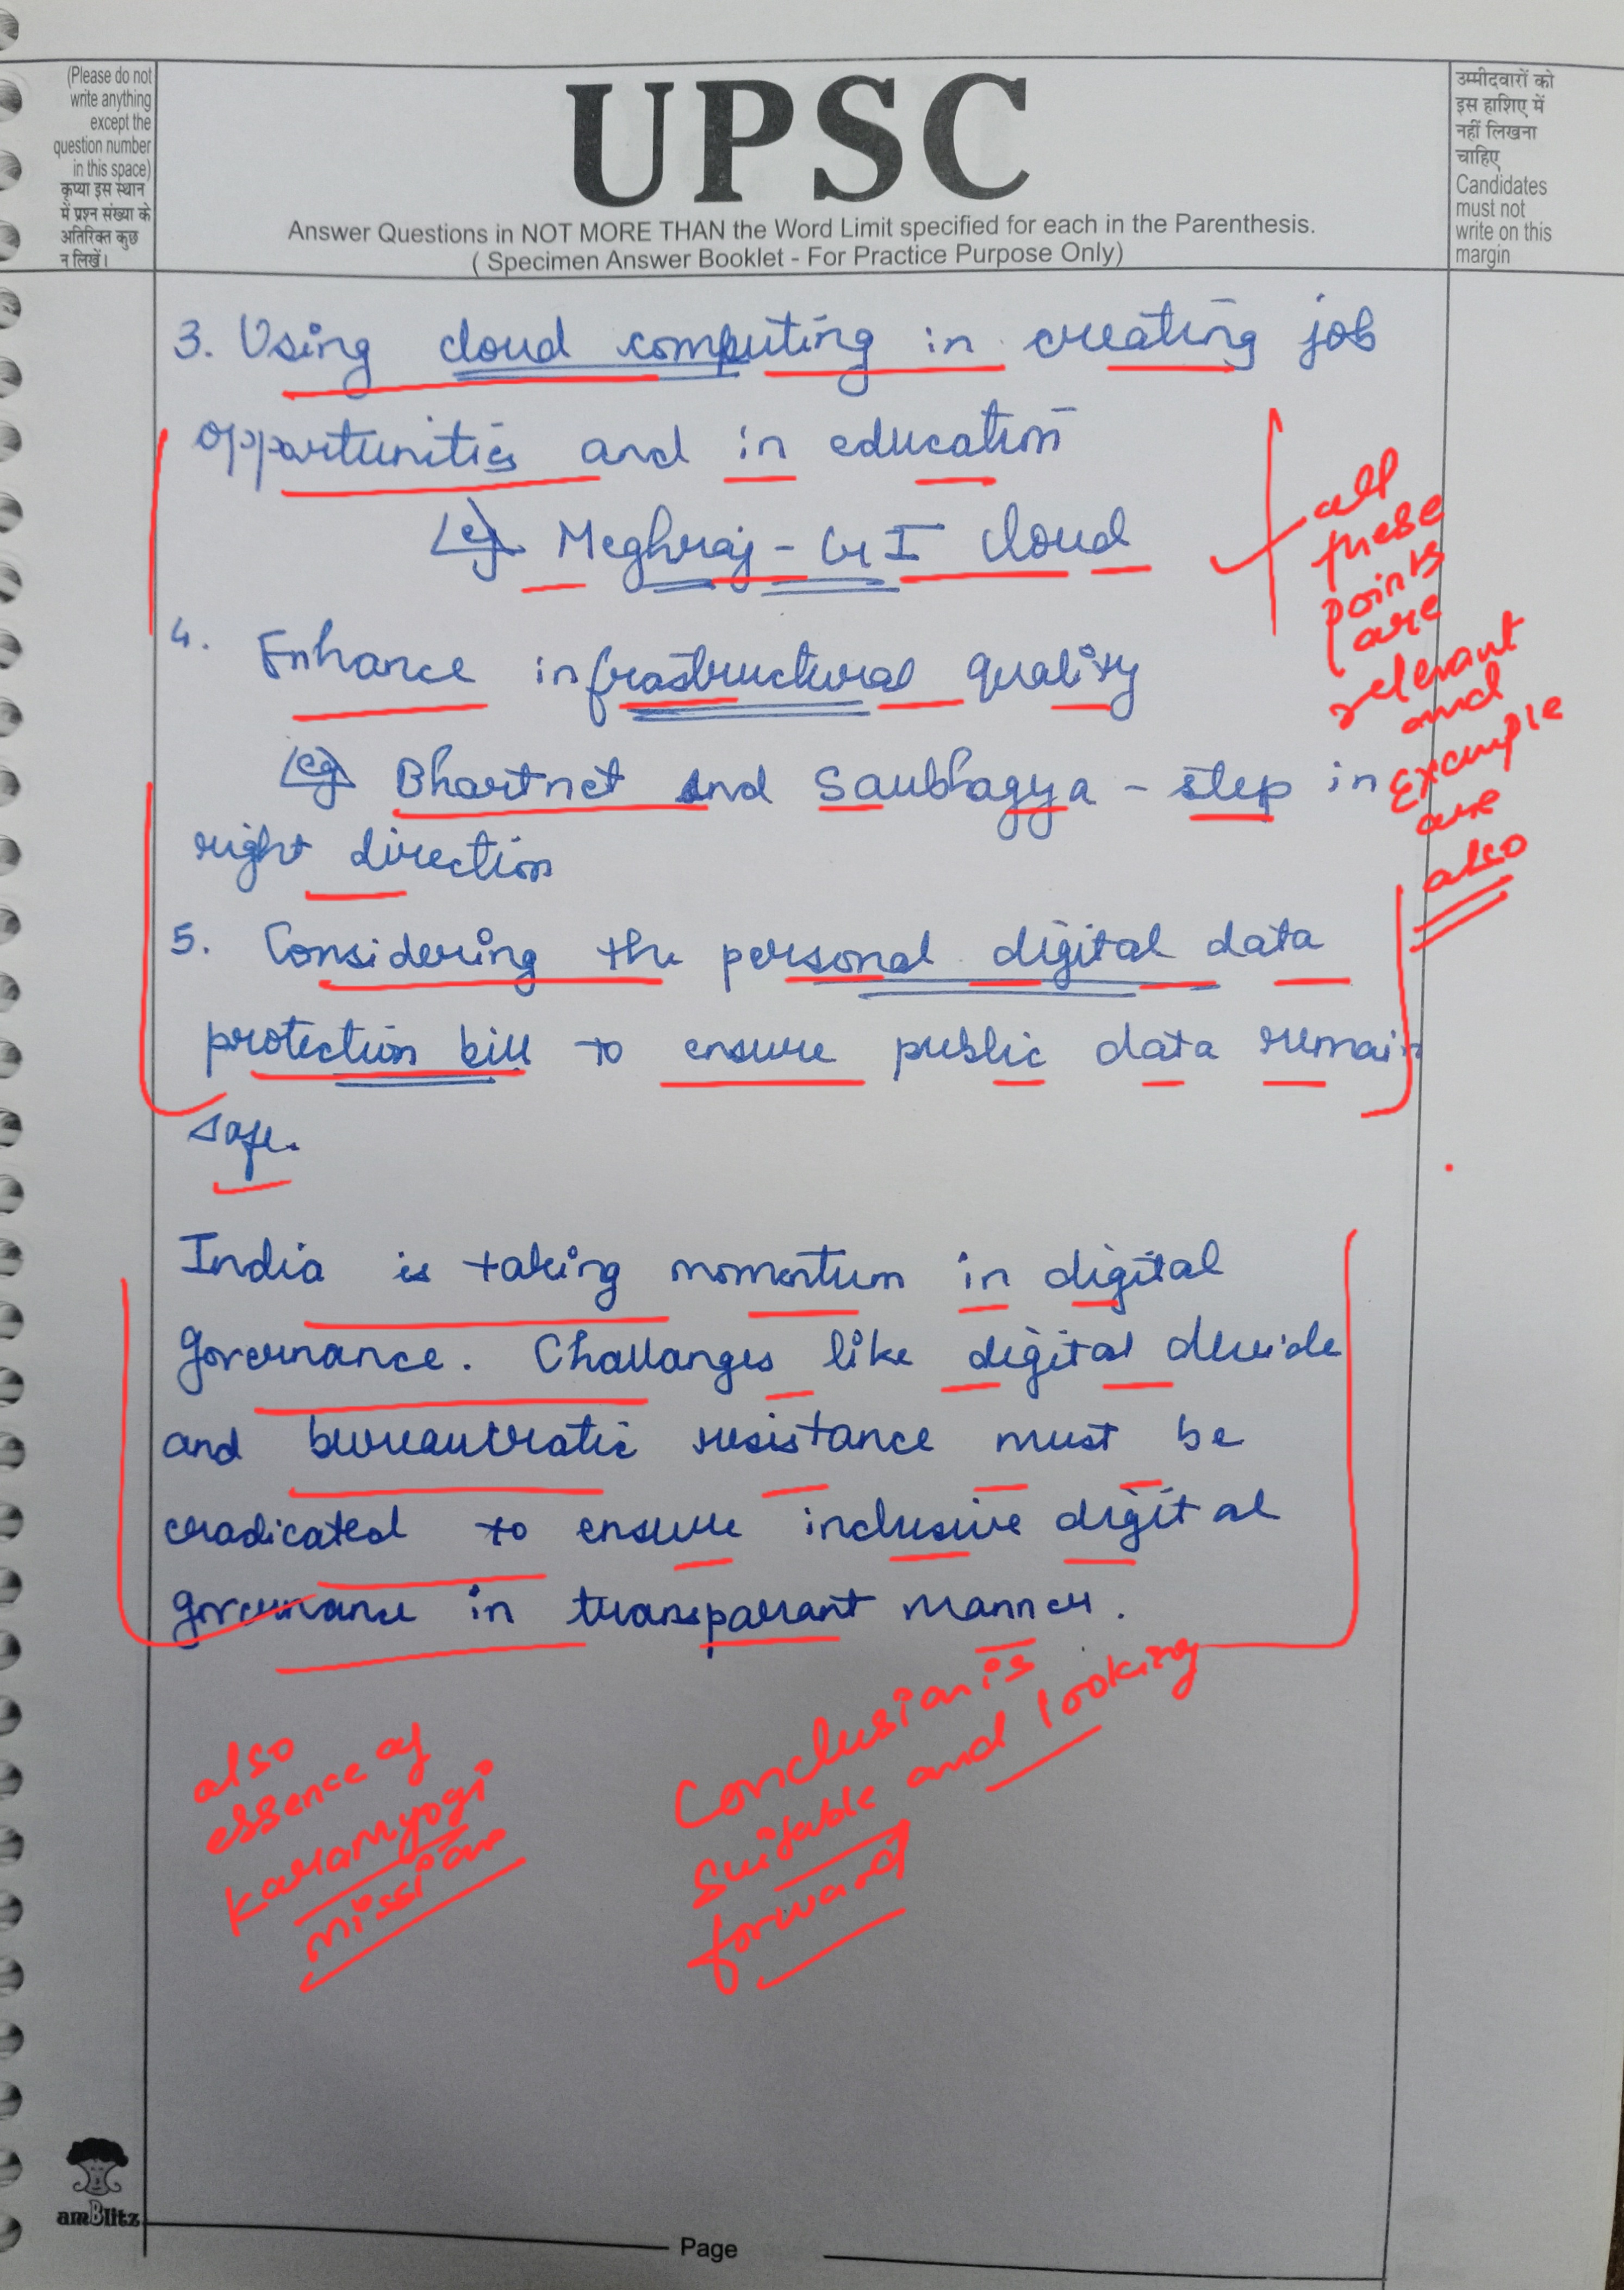 (Please do not
write anything
except the
question number
in this space)
कृप्या इस स्थान
में प्रश्न संख्या के
अतिरिक्त कुछ
न लिखें।
UPSC
Answer Questions in NOT MORE THAN the Word Limit specified for each in the Parenthesis.
( Specimen Answer Booklet - For Practice Purpose Only)
उम्मीदवारों को
इस हाशिए में
नहीं लिखना
चाहिए
Candidates
must not
write on this
margin
3. Using cloud computing in creating job
opportunities and in education
eg Meghraj - GI Cloud
4. Enhance infrastructural quality
eg Bhartnet and Saubhagya - step in
right direction
5. Considering the personal digital data
protection bill to ensure public data remain
safe.
all
these
points
are
relevant
and
Example
are
also
India is taking momentum in digital
governance. Challanges like digital devide
and bureaucratic resistance must be
eradicated to ensure inclusive digital
governance in transparant manner.
also
essence of
karamyogi
mission
Conclusion is
suitable and looking
forward
amBlitz
Page